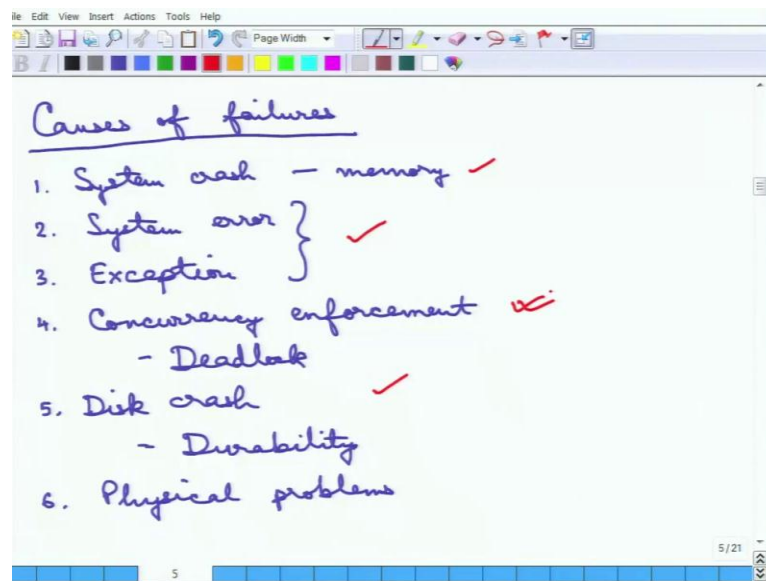 ile Edit View Insert Actions Tools Help
Page Width
B I
Causes of failures
1. System crash - memory
2. System error
3. Exception
4. Concurrency enforcement
- Deadlock
5. Disk crash
- Durability
6. Physical problems
5/21
5